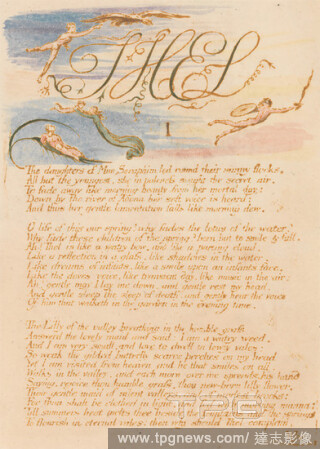 THEL
I
The daughters of Mne Seraphim led round their sunny flocks.
All but the youngest; she in paleness sought the secret air.
To fade away like morning beauty from her mortal day:
Down by the river of Adona her soft voice is heard:
And thus her gentle lamentation falls like morning dew.
O life of this our spring! why fades the lotus of the water?
Why fade these children of the spring? born but to smile & fall.
Ah! Thel is like a watry bow. and like a parting cloud.
Like a reflection in a glass. like shadows in the water.
Like dreams of infants. like a smile upon an infants face,
Like the doves voice, like transient day, like music in the air;
Ah! gentle may I lay me down, and gentle rest my head.
And gentle sleep the sleep of death. and gentle hear the voice
Of him that walketh in the garden in the evening time.
The Lilly of the valley breathing in the humble grass
Answer'd the lovely maid and said; I am a watry weed,
And I am very small, and love to dwell in lowly vales;
So weak, the gilded butterfly scarce perches on my head.
Yet I am visited from heaven and he that smiles on all.
Walks in the valley. and each morn over me spreads his hand
Saying, rejoice thou humble grass, thou new-born lilly flower,
Thou gentle maid of silent valleys. and of modest brooks;
For thou shalt be clothed in light, and fed with morning manna:
Till summers heat melts thee beside the fountains and the springs
To flourish in eternal vales: then why should Thel complain,
TPG
www.tpgnews.com | 達志影像